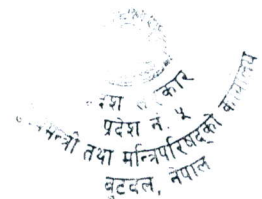 प्रदेश नं. ५
मन्त्री तथा मन्त्रिपरिषद्को कार्यालय
बुटवल, नेपाल